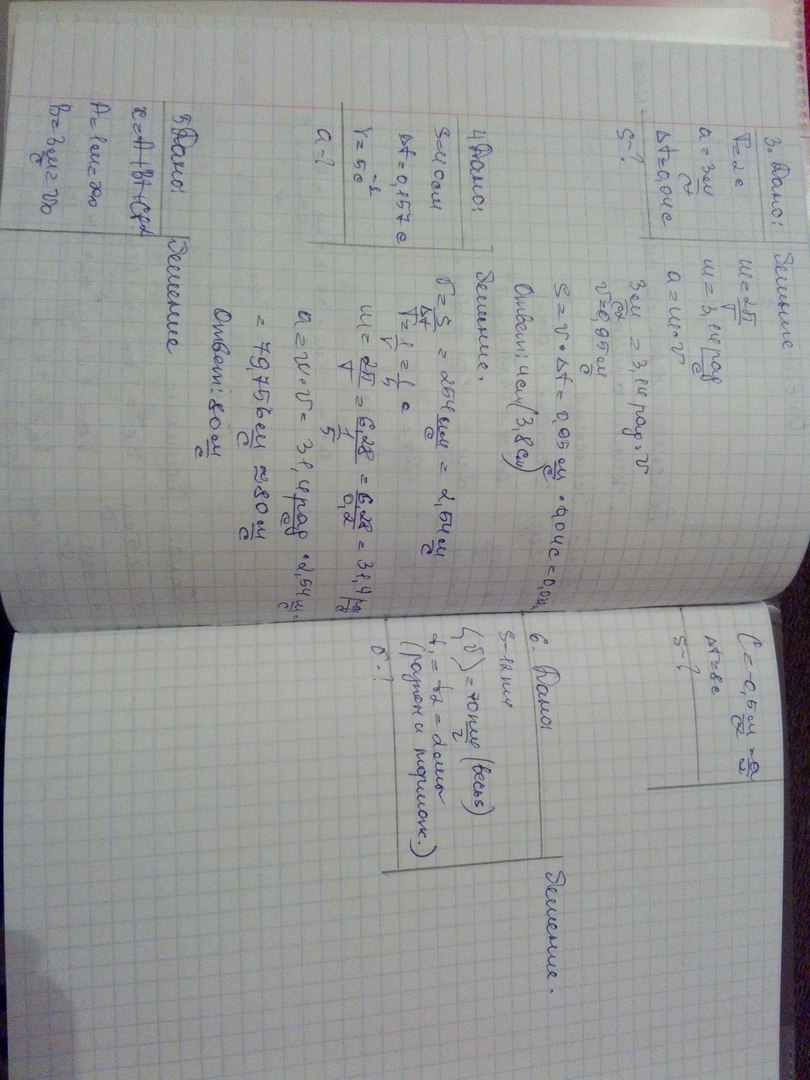 3. Дано:
T=2с
a=3м/с²
Δt=0,04с
S-?
Решение
ω=2π/T
ω=3,14 рад/с
a=ω·v
3м/с²=3,14рад·v
v=0,95м/с
S=v·Δt=0,95м/с·0,04с=0,04
Ответ: 4см(3,8см)
4 Дано:
S=40см
Δt=0,157с
ν=5с⁻¹
a-?
Решение.
v=S/Δt=254см/с=2,54м/с
T=1/ν=1/5 с
ω=2π/T=6,28/1/5=6,28/0,2=31,4рад/с
a=ω·v=31,4рад/с·2,54м/с=
=79,756м/с≈80м/с
Ответ: 80м/с
5 Дано:
x=A+Bt+Ct²
A=1см=x₀
B=3м/с=v₀
Решение
C=-0,5м/с²=a/2
Δt=8с
S-?
6. Дано:
S-12км
⟨v⟩=70км/ч (весь S)
t₁=t₂=2мин
(разгон и тормож.)
v-?
Решение.